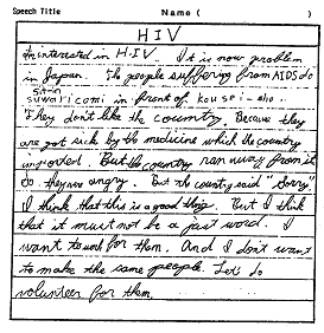 Speech Title Name ( )
HIV
I'm interested in H.I.V. It is now problem
in Japan. The people suffering from AIDS do
sit-in
suwaricomi in front of kousei-sho.
They don't like the country. Because they
are got sick by the medicine which the country
imported. But the country ran away from it
So they are angry. But the country said "Sorry".
I think that this is a good thing. But I think
that it must not be a just word. I
want to work for them. And I don't want
to make the same people. Let's do
volunteer for them.